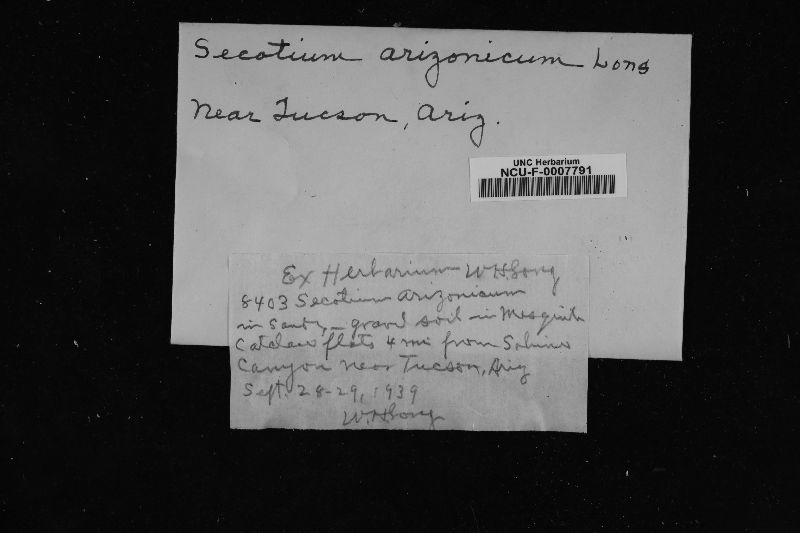 Secotium arizonicum Long
Near Tucson, Ariz.
UNC Herbarium
NCU-F-0007791
Ex Herbarium W.H. Long
8403 Secotium arizonicum
in sandy, - gravel soil in Mesquite
Catclaw flats 4 mi from Sabino
Canyon near Tucson, Ariz
Sept. 28-29, 1939
W.H. Long